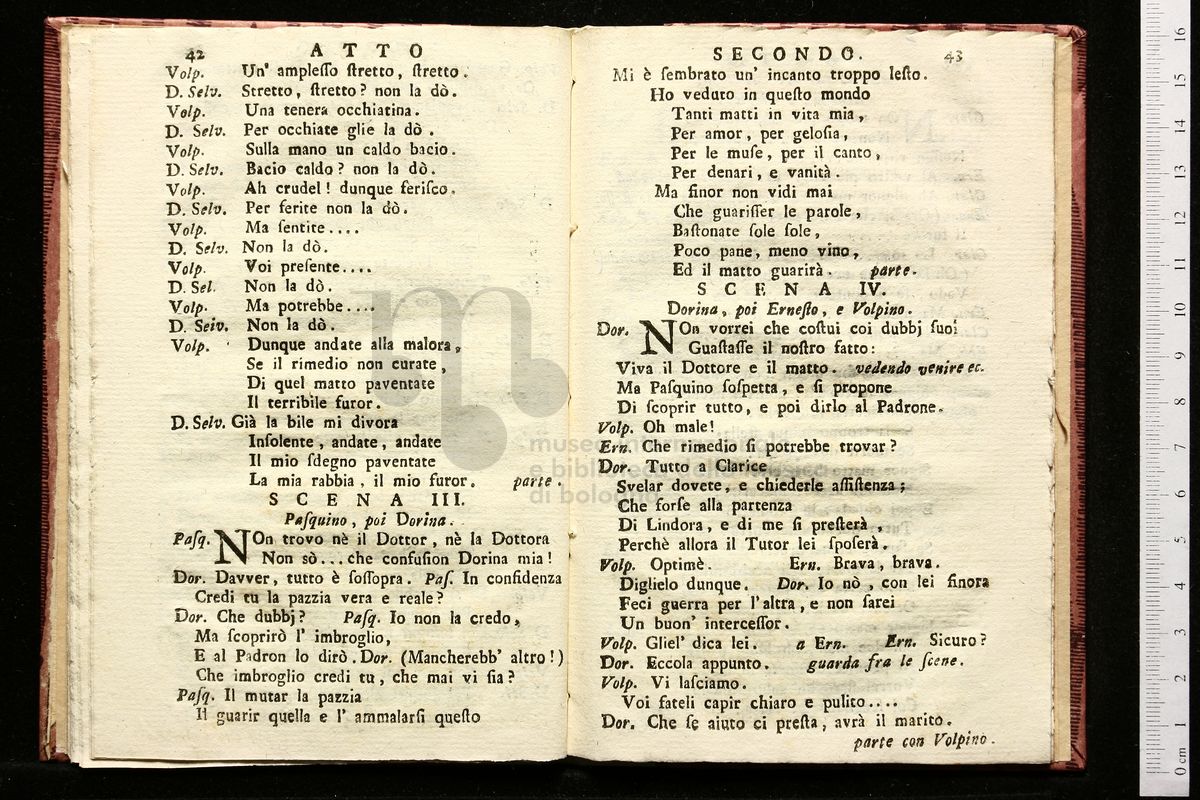 42 ATTO
Volp. Un' ampleſſo ſtretto, ſtretto.
D. Selv. Stretto, ſtretto? non la dò.
Volp. Una tenera occhiatina.
D. Selv. Per occhiate glie la dò.
Volp. Sulla mano un caldo bacio.
D. Selv. Bacio caldo? non la dò.
Volp. Ah crudel! dunque feriſco.
D. Selv. Per ferite non la dò.
Volp. Ma ſentite....
D. Selv. Non la dò.
Volp. Voi preſente....
D. Sel. Non la dò.
Volp. Ma potrebbe....
D. Seiv. Non la dò.
Volp. Dunque andate alla malora,
Se il rimedio non curate,
Di quel matto paventate
Il terribile furor.
D. Selv. Già la bile mi divora
Inſolente, andate, andate
Il mio ſdegno paventate
La mia rabbia, il mio furor. parte.
SCENA III.
Paſquino, poi Dorina.
Paſq. NOn trovo nè il Dottor, nè la Dottora
Non sò...che confuſion Dorina mia!
Dor. Davver, tutto è ſoſſopra. Paſ. In confidenza
Credi tu la pazzia vera e reale?
Dor. Che dubbj? Paſq. Io non la credo,
Ma ſcoprirò l' imbroglio,
E al Padron lo dirò. Dor. (Mancherebb' altro!)
Che imbroglio credi tu, che mai vi ſia?
Paſq. Il mutar la pazzia
Il guarir quella e l' ammalarſi queſto
SECONDO. 43
Mi è ſembrato un' incanto troppo leſto.
Ho veduto in queſto mondo
Tanti matti in vita mia,
Per amor, per geloſia,
Per le muſe, per il canto,
Per denari, e vanità.
Ma finor non vidi mai
Che guariſſer le parole,
Baſtonate ſole ſole,
Poco pane, meno vino,
Ed il matto guarirà. parte.
SCENA IV.
Dorina, poi Erneſto, e Volpino.
Dor. NOn vorrei che coſtui coi dubbj ſuoi
Guaſtaſſe il noſtro fatto:
Viva il Dottore e il matto. vedendo venire ec.
Ma Paſquino ſoſpetta, e ſi propone
Di ſcoprir tutto, e poi dirlo al Padrone.
Volp. Oh male!
Ern. Che rimedio ſi potrebbe trovar?
Dor. Tutto a Clarice
Svelar dovete, e chiederle aſſiſtenza;
Che forſe alla partenza
Di Lindora, e di me ſi preſterà,
Perchè allora il Tutor lei ſpoſerà.
Volp. Optimè. Ern. Brava, brava.
Diglielo dunque. Dor. Io nò, con lei finora
Feci guerra per l'altra, e non farei
Un buon' interceſſor.
Volp. Gliel' dica lei. a Ern. Ern. Sicuro?
Dor. Eccola appunto. guarda fra le ſcene.
Volp. Vi laſciamo.
Voi fateli capir chiaro e pulito....
Dor. Che ſe aiuto ci preſta, avrà il marito.
parte con Volpino.
museo internazionale
e biblioteca della musica
di bologna
0 cm 1 2 3 4 5 6 7 8 9 10 11 12 13 14 15 16